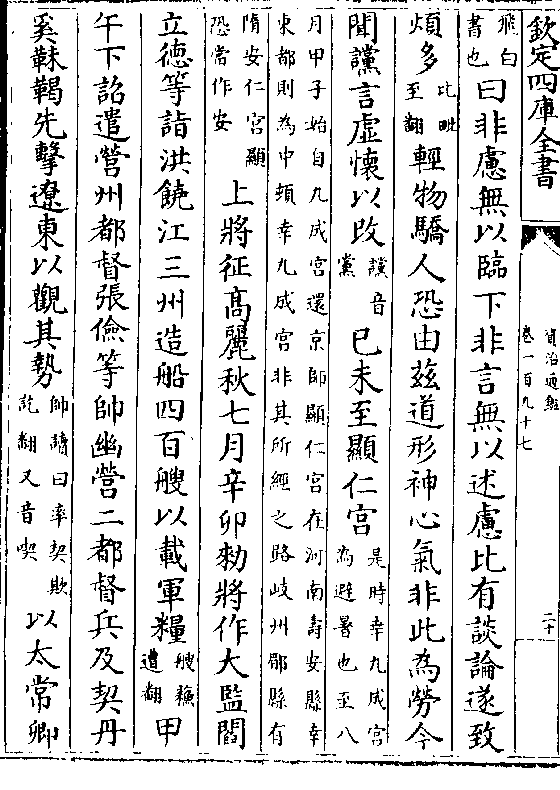 欽定四庫全書
資治通鑑
卷一百九十七
二十
飛白書也曰非慮無以臨下非言無以述慮比有談論遂致
煩多比毗至翻輕物驕人恐由茲道形神心氣非此為勞今
聞讜言虛懷以改讜音黨已未至顯仁宮是時幸九成宮為避暑也至八
月甲子始自九成宮還京師顯仁宮在河南壽安縣幸東都則為中頓幸九成宮非其所經之路岐州郿縣有
隋安仁宮顯恐當作安上將征高麗秋七月辛卯勑將作大監閻
立德等詣洪饒江三州造船四百艘以載軍糧艘蘇遭翻甲
午下詔遣營州都督張儉等帥幽營二都督兵及契丹
奚靺鞨先擊遼東以觀其勢帥讀曰率契欺訖翻又音喫以太常卿